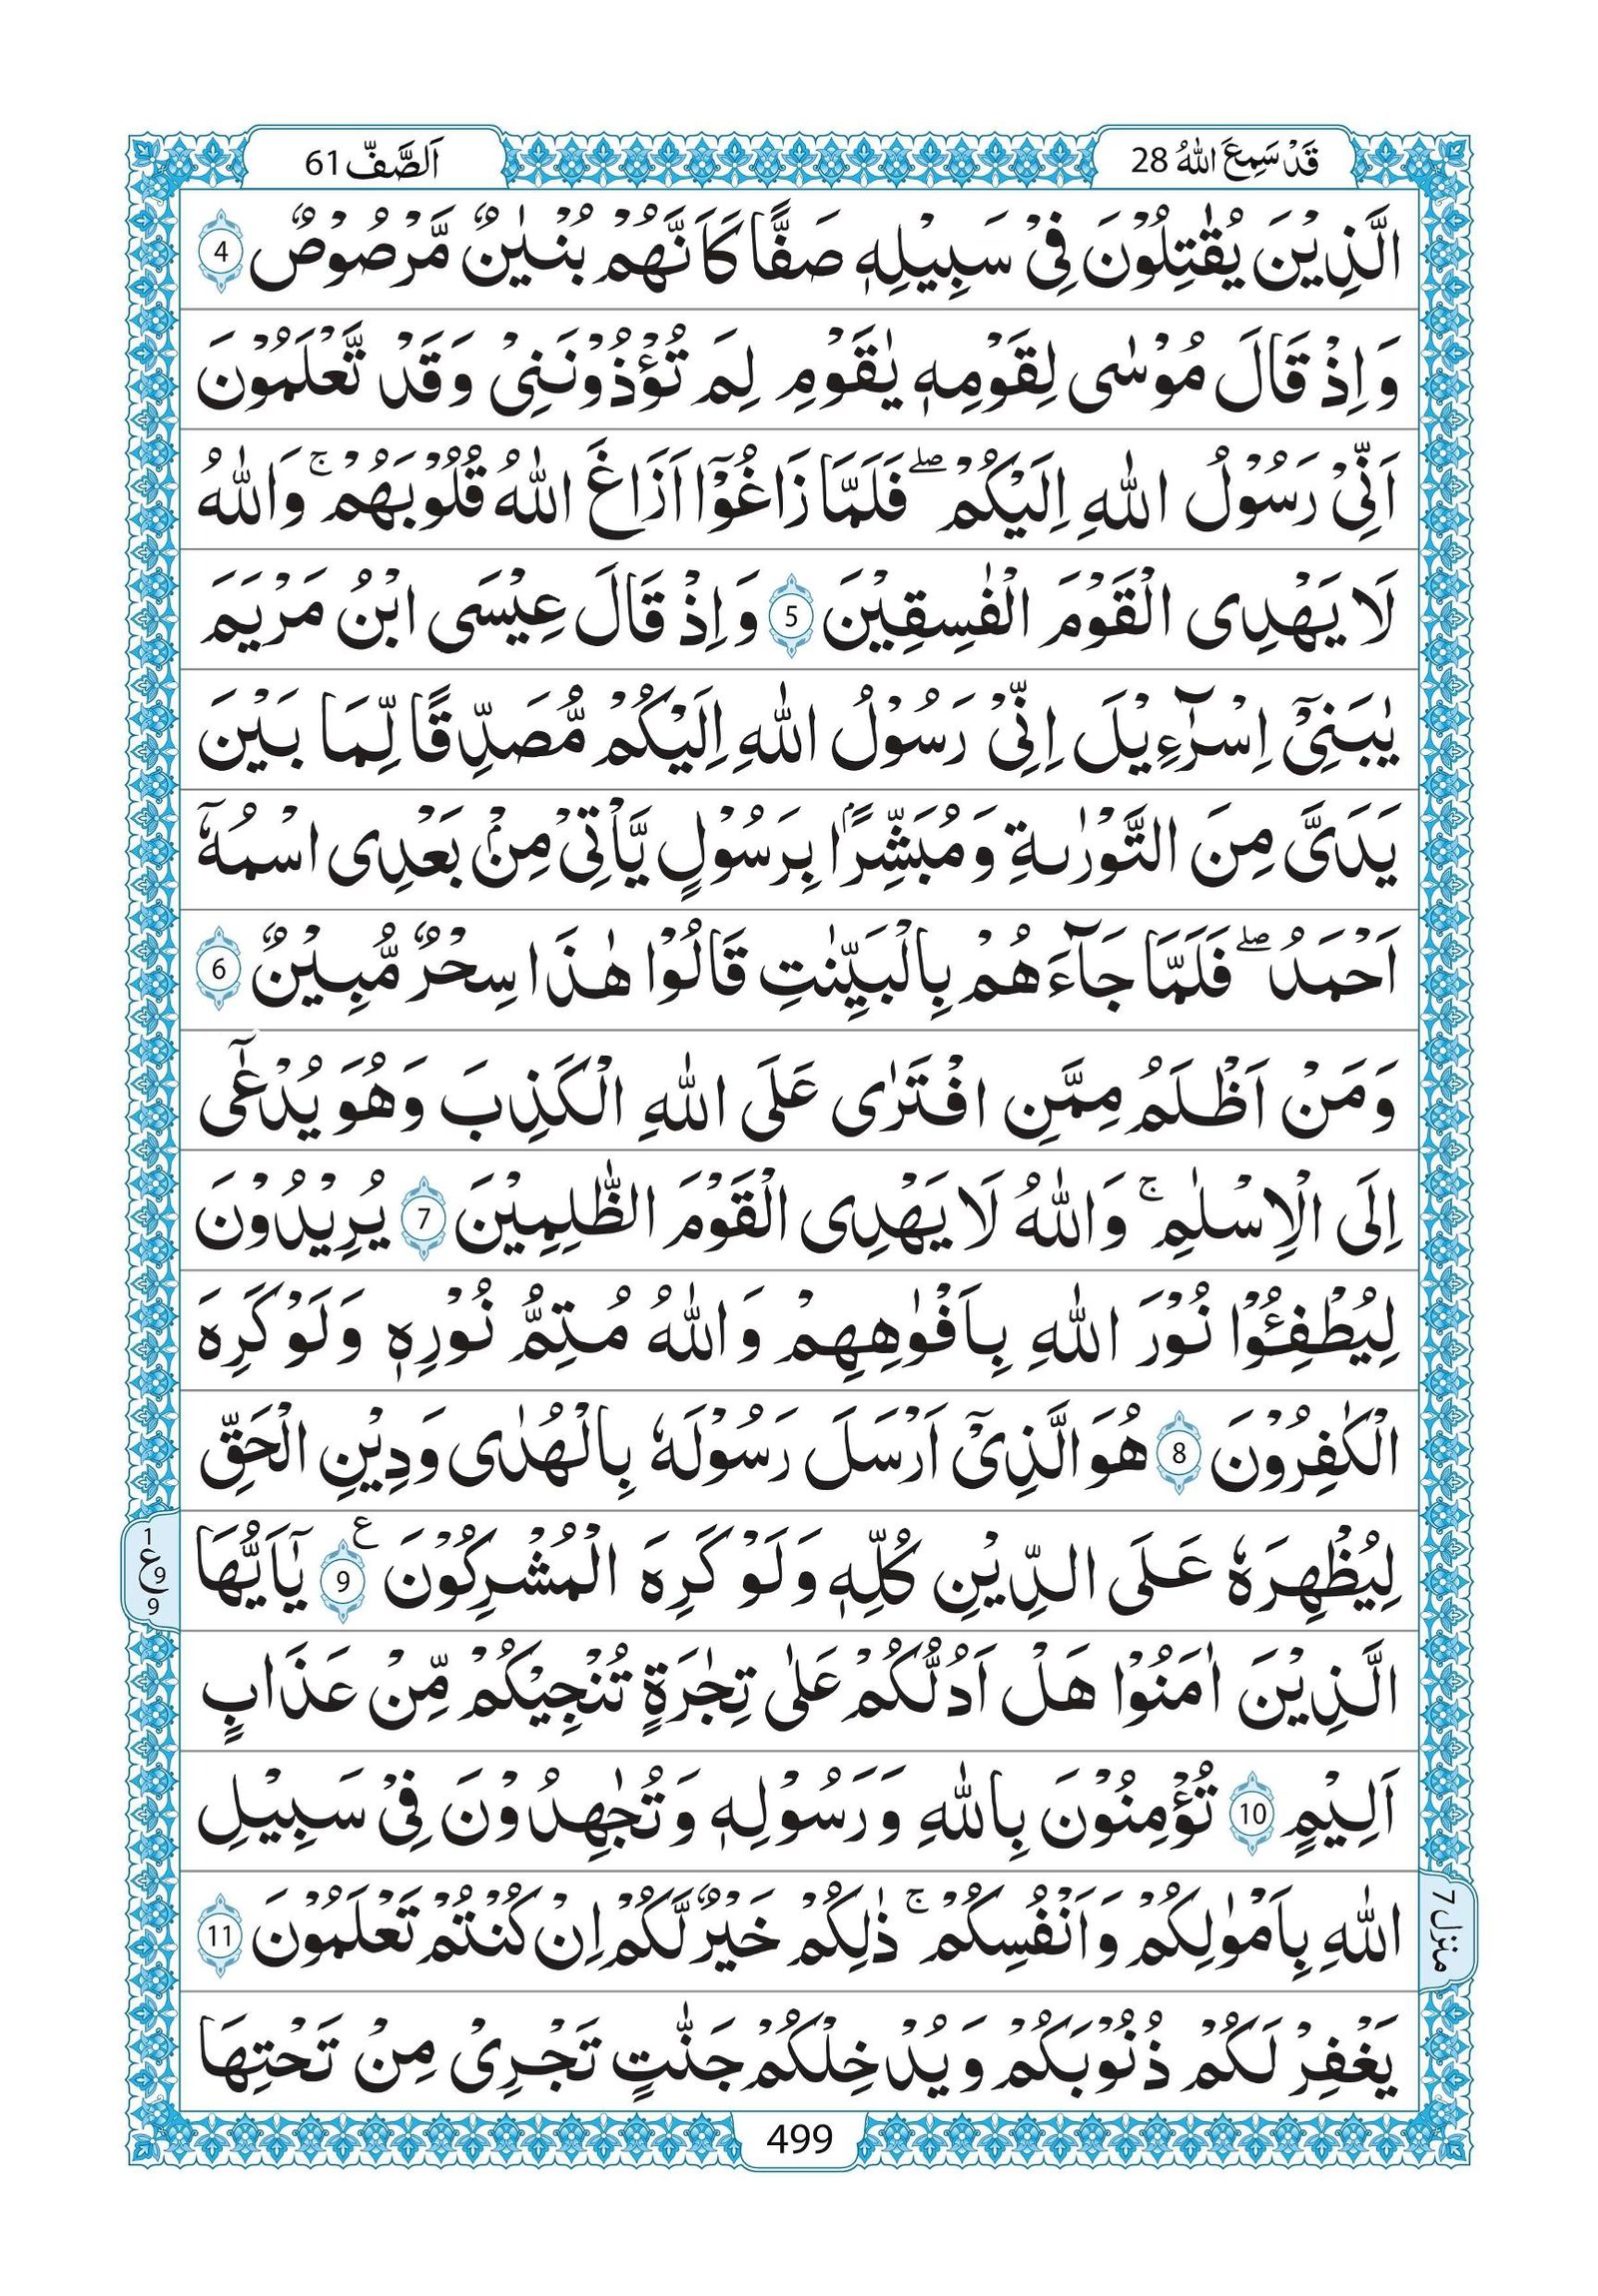 قَدْ سَمِعَ اللّٰهُ 28
اَلصَّفّ 61
الَّذِيْنَ يُقَاتِلُوْنَ فِيْ سَبِيْلِهٖ صَفًّا كَاَنَّهُمْ بُنْيٰنٌ مَّرْصُوْصٌ 4
وَاِذْ قَالَ مُوْسٰى لِقَوْمِهٖ يٰقَوْمِ لِمَ تُؤْذُوْنَنِيْ وَقَدْ تَّعْلَمُوْنَ
اَنِّيْ رَسُوْلُ اللّٰهِ اِلَيْكُمْ ۖ فَلَمَّا زَاغُوْٓا اَزَاغَ اللّٰهُ قُلُوْبَهُمْ ۚ وَاللّٰهُ
لَا يَهْدِى الْقَوْمَ الْفٰسِقِيْنَ 5 وَاِذْ قَالَ عِيْسَى ابْنُ مَرْيَمَ
يٰبَنِيْٓ اِسْرَآءِيْلَ اِنِّيْ رَسُوْلُ اللّٰهِ اِلَيْكُمْ مُّصَدِّقًا لِّمَا بَيْنَ
يَدَيَّ مِنَ التَّوْرٰىةِ وَمُبَشِّرًاۢ بِرَسُوْلٍ يَّاْتِيْ مِنْۢ بَعْدِى اسْمُهٗٓ
اَحْمَدُ ۖ فَلَمَّا جَآءَهُمْ بِالْبَيِّنٰتِ قَالُوْا هٰذَا سِحْرٌ مُّبِيْنٌ 6
وَمَنْ اَظْلَمُ مِمَّنِ افْتَرٰى عَلَى اللّٰهِ الْكَذِبَ وَهُوَ يُدْعٰٓى
اِلَى الْاِسْلٰمِ ۚ وَاللّٰهُ لَا يَهْدِى الْقَوْمَ الظّٰلِمِيْنَ 7 يُرِيْدُوْنَ
لِيُطْفِـُٔوْا نُوْرَ اللّٰهِ بِاَفْوٰهِهِمْ وَاللّٰهُ مُتِمُّ نُوْرِهٖ وَلَوْ كَرِهَ
الْكٰفِرُوْنَ 8 هُوَ الَّذِيْٓ اَرْسَلَ رَسُوْلَهٗ بِالْهُدٰى وَدِيْنِ الْحَقِّ
لِيُظْهِرَهٗ عَلَى الدِّيْنِ كُلِّهٖ وَلَوْ كَرِهَ الْمُشْرِكُوْنَ ع 9 يٰٓاَيُّهَا
1 ع 9 9
الَّذِيْنَ اٰمَنُوْا هَلْ اَدُلُّكُمْ عَلٰى تِجٰرَةٍ تُنْجِيْكُمْ مِّنْ عَذَابٍ
اَلِيْمٍ 10 تُؤْمِنُوْنَ بِاللّٰهِ وَرَسُوْلِهٖ وَتُجٰهِدُوْنَ فِيْ سَبِيْلِ
اللّٰهِ بِاَمْوٰلِكُمْ وَاَنْفُسِكُمْ ۚ ذٰلِكُمْ خَيْرٌ لَّكُمْ اِنْ كُنْتُمْ تَعْلَمُوْنَ 11
منزل 7
يَغْفِرْ لَكُمْ ذُنُوْبَكُمْ وَيُدْخِلْكُمْ جَنّٰتٍ تَجْرِيْ مِنْ تَحْتِهَا
499